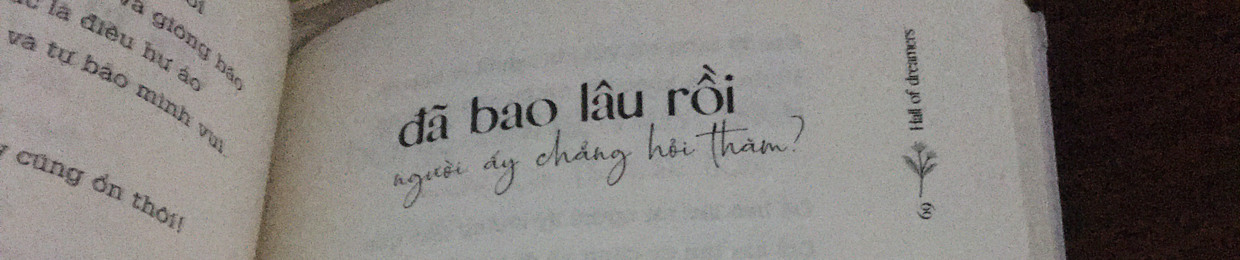 và giông bão
là điều hư ảo
và tự bảo mình vui.
cũng ổn thôi!
đã bao lâu rồi
người ấy chẳng hỏi thăm?
Hall of dreamers